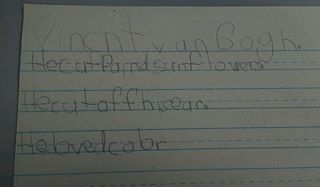 Vincnt van Gogh.
Hecut Paindsunflowers.
Hecutoffhisear.
Helovedcolor